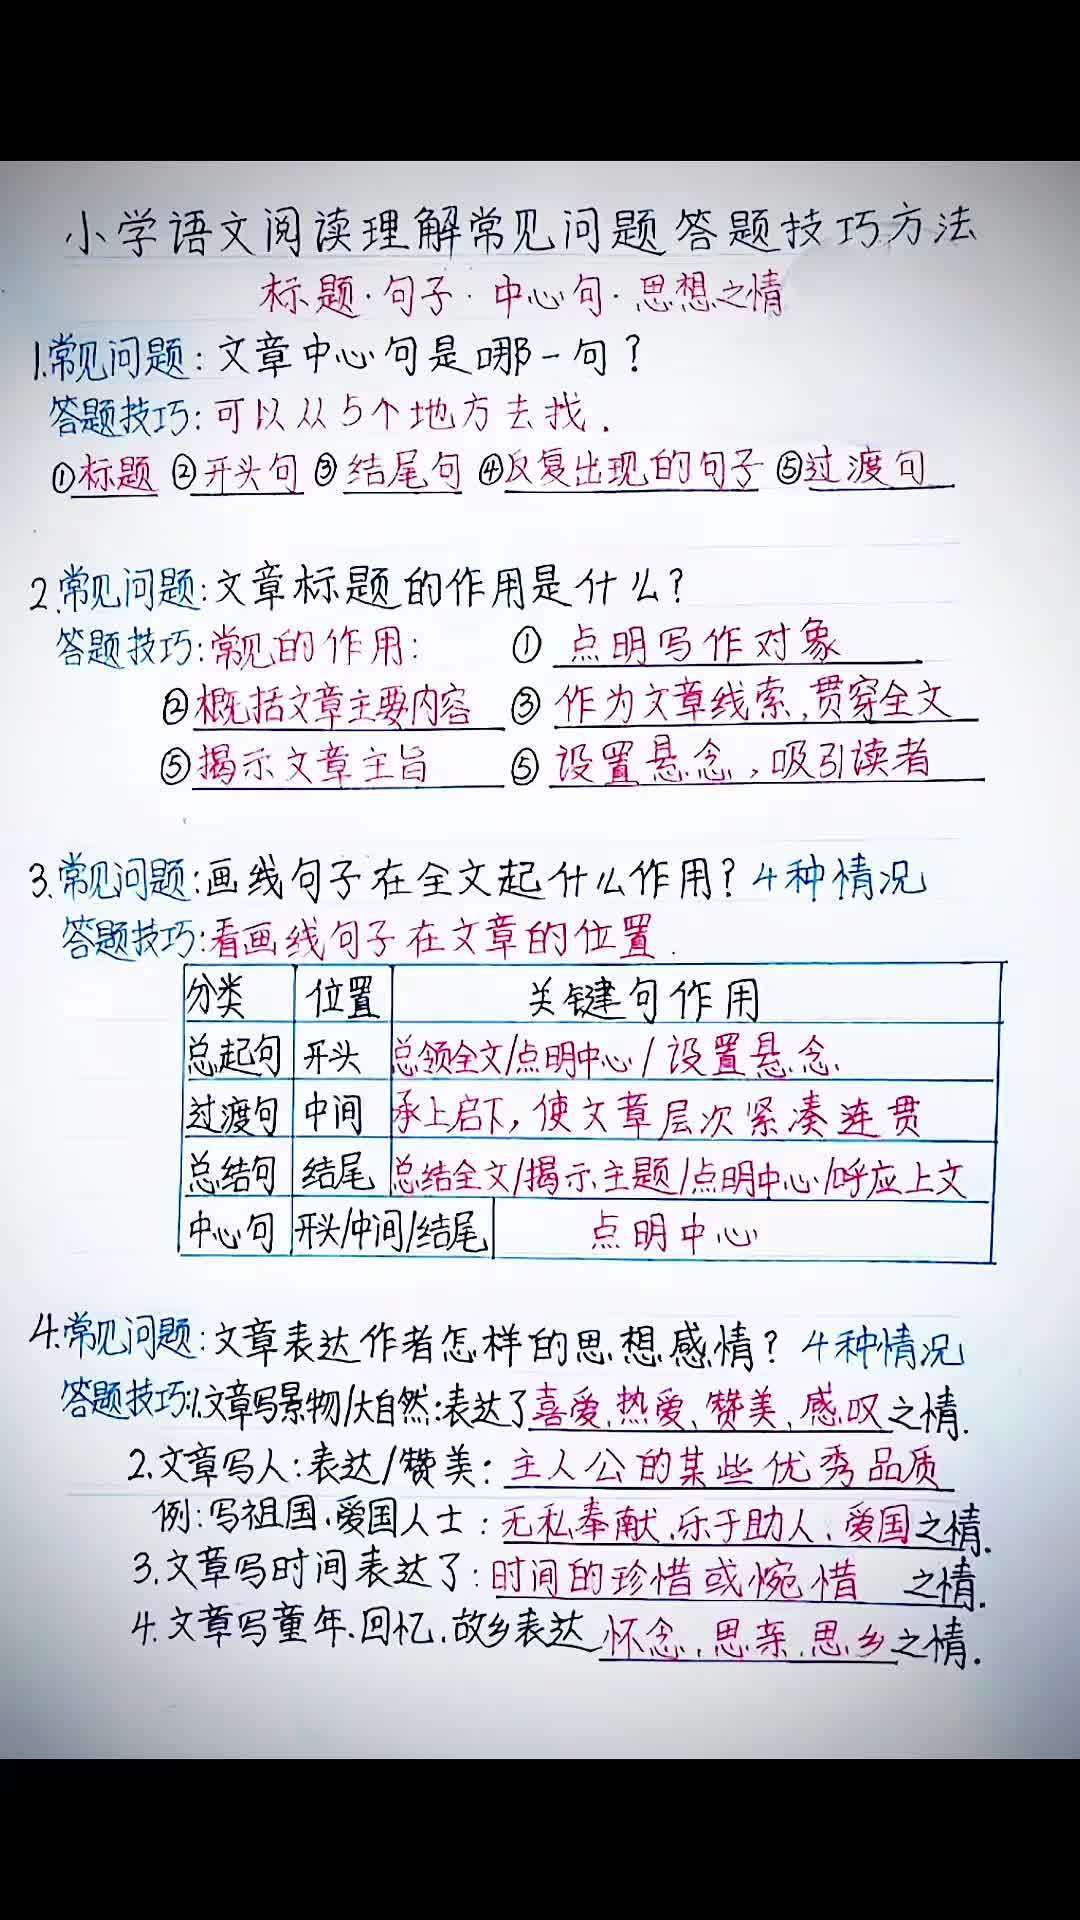 小学语文阅读理解常见问题答题技巧方法
标题·句子·中心句·思想之情
1.常见问题:文章中心句是哪一句?
答题技巧:可以从5个地方去找.
①标题 ②开头句 ③结尾句 ④反复出现的句子 ⑤过渡句
2.常见问题:文章标题的作用是什么?
答题技巧:常见的作用: ① 点明写作对象
②概括文章主要内容 ③ 作为文章线索,贯穿全文
⑤揭示文章主旨 ⑤ 设置悬念,吸引读者
3.常见问题:画线句子在全文起什么作用?4种情况
答题技巧:看画线句子在文章的位置.
分类 位置 关键句作用
总起句 开头 总领全文/点明中心/设置悬念.
过渡句 中间 承上启下,使文章层次紧凑连贯
总结句 结尾 总结全文/揭示主题/点明中心/呼应上文
中心句 开头/中间/结尾 点明中心
4.常见问题:文章表达作者怎样的思想感情?4种情况
答题技巧:1.文章写景物/大自然:表达了喜爱、热爱、赞美、感叹之情.
2.文章写人:表达/赞美:主人公的某些优秀品质
例:写祖国、爱国人士:无私奉献、乐于助人、爱国之情.
3.文章写时间表达了:时间的珍惜或惋惜 之情.
4.文章写童年、回忆、故乡表达 怀念、思亲、思乡之情.